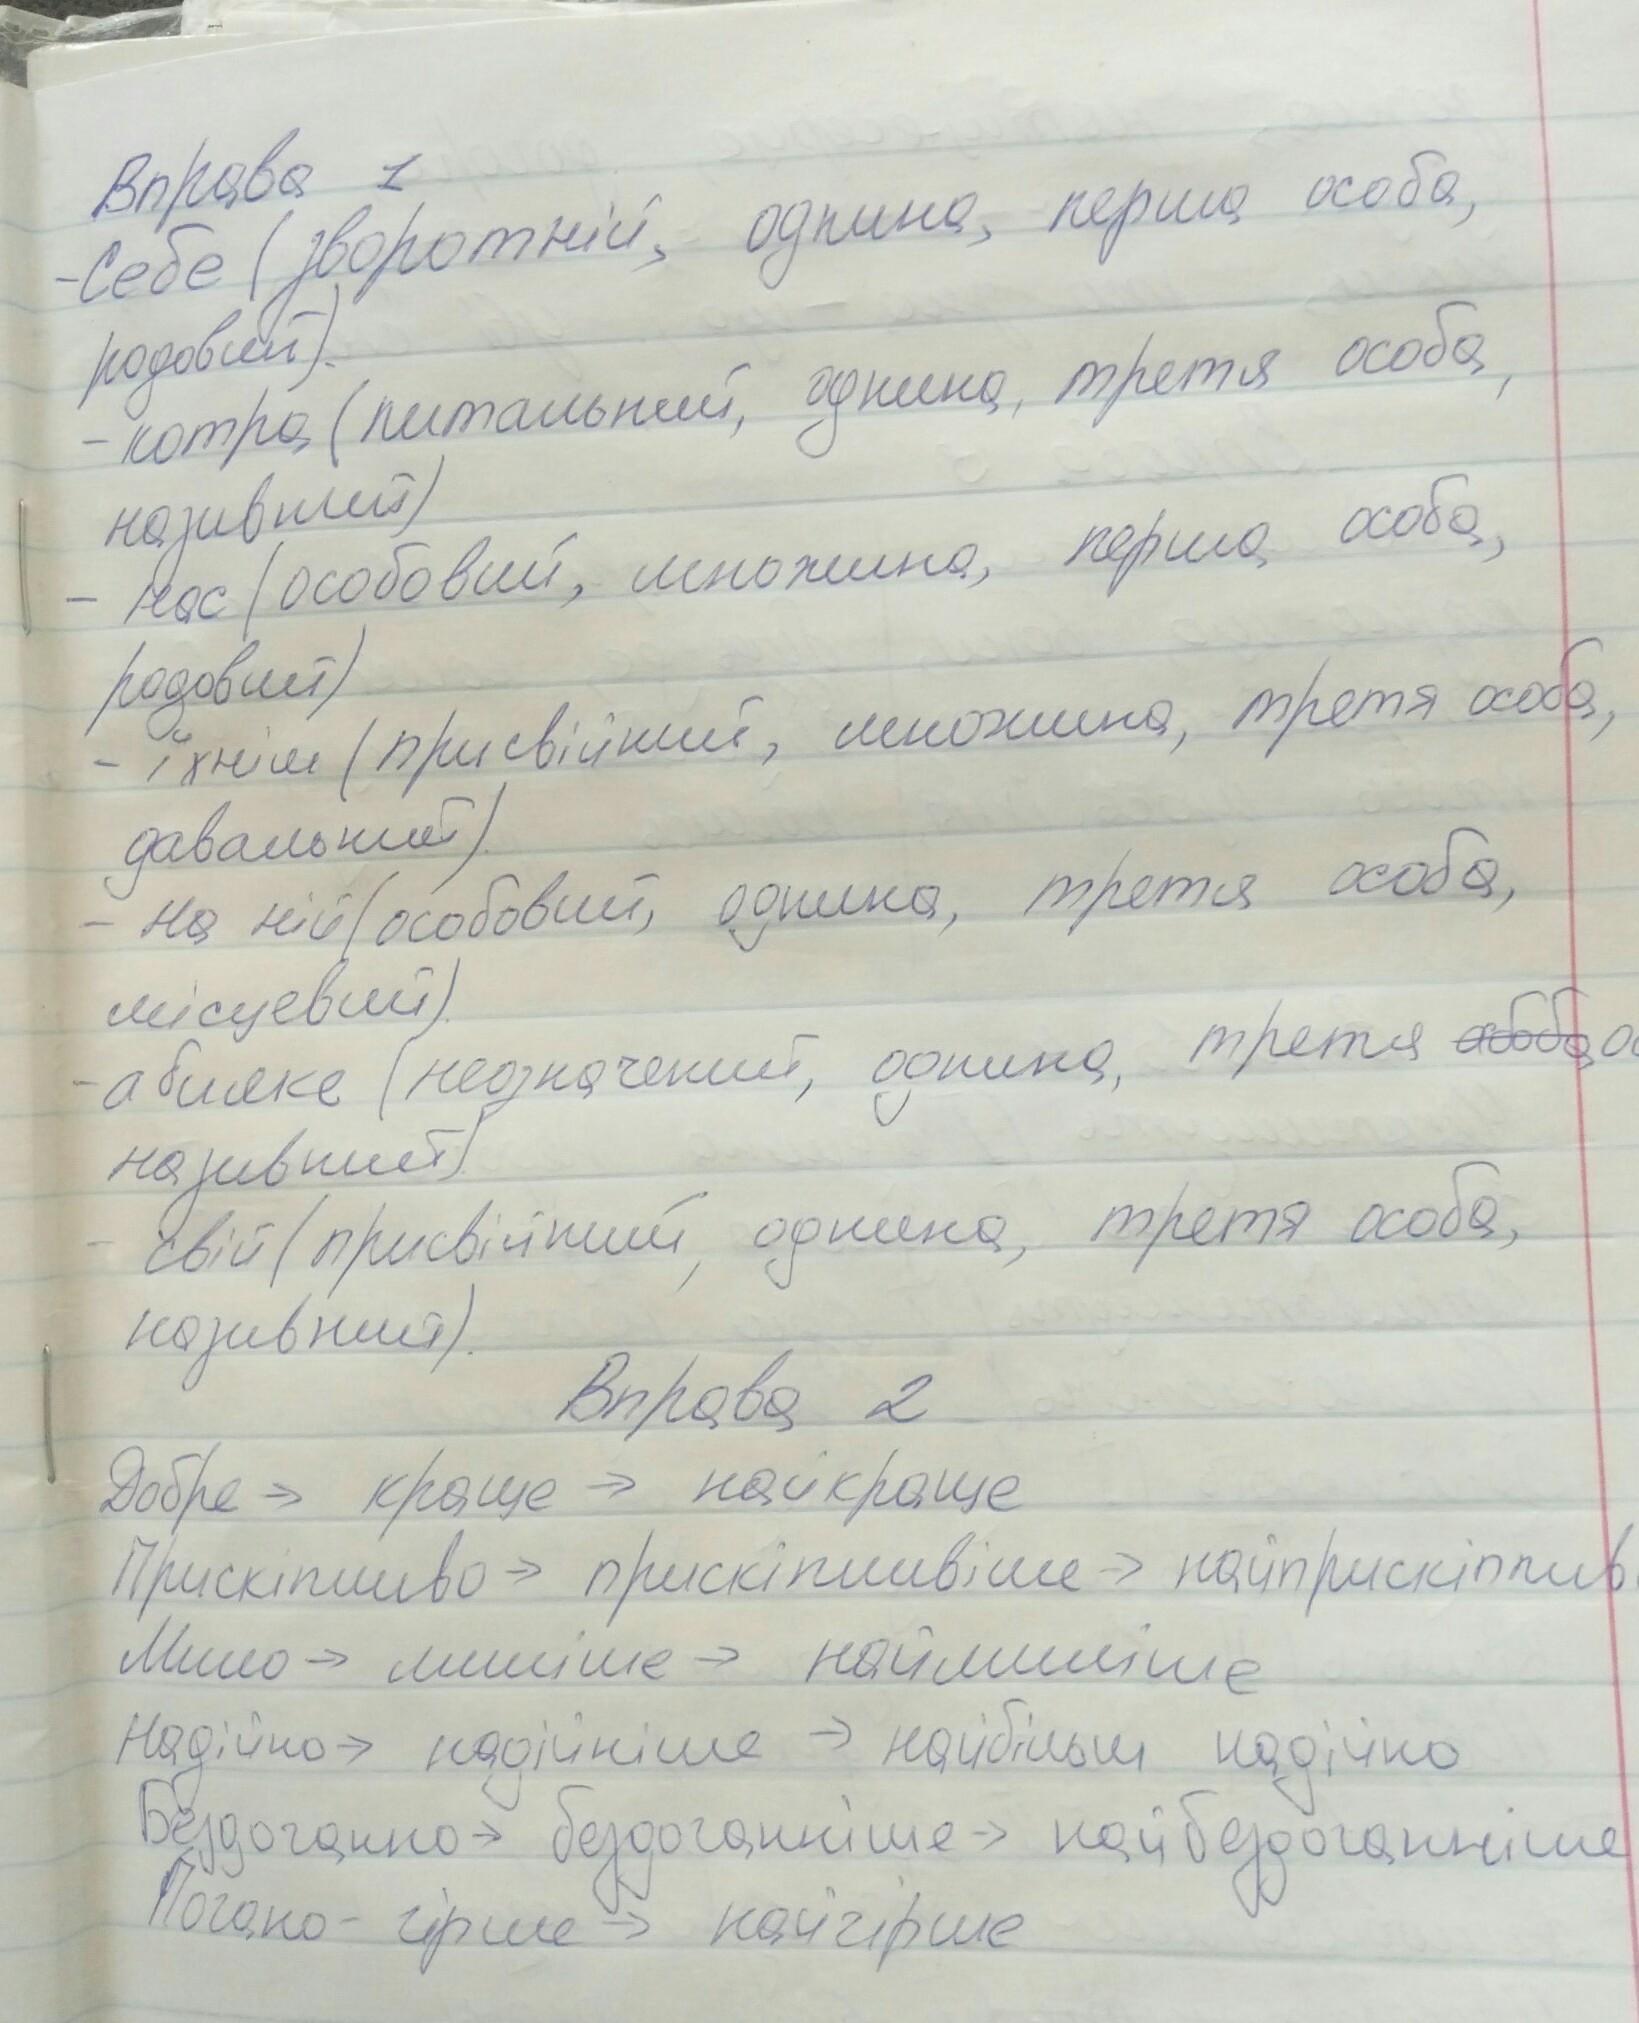 Вправа 1
-Себе (зворотній, однина, перша особа,
родовий).
- котра (питальний, однина, третя особа,
називний)
- нас (особовий, множина, перша особа,
родовий)
- їхнім (присвійний, множина, третя особа,
давальний).
- на ній (особовий, однина, третя особа,
місцевий).
- абияке (неозначений, однина, третя особа ос
називний)
- свій (присвійний, однина, третя особа,
називний).
Вправа 2
Добре → краще → найкраще
Прискіпливо → прискіпливіше → найприскіплив
Мило → миліше → наймиліше
Надійно → надійніше → найбільш надійно
Бездоганно → бездоганніше → найбездоганніше
Погано - гірше → найгірше